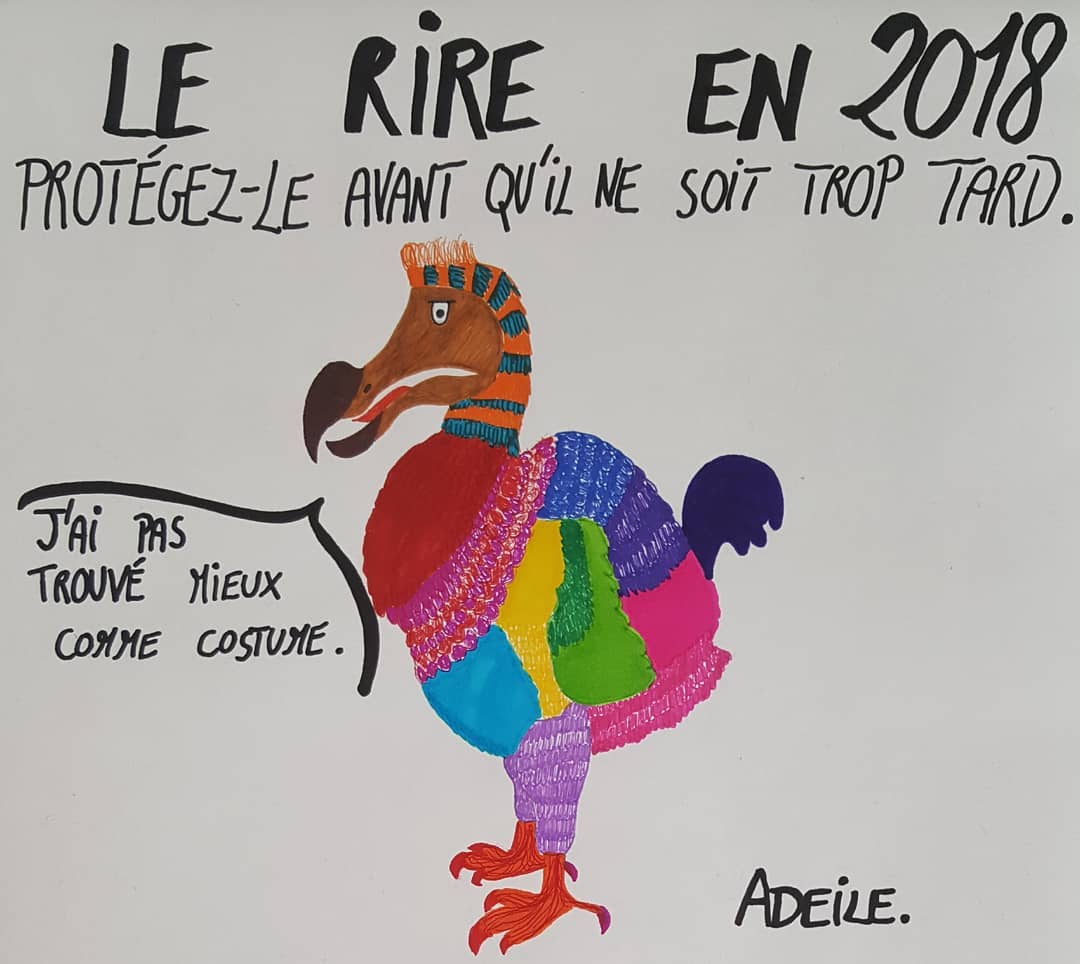 LE RIRE EN 2018
PROTÉGEZ-LE AVANT QU'IL NE SOIT TROP TARD.
J'AI PAS
TROUVÉ MIEUX
COMME COSTUME.
ADEILE.